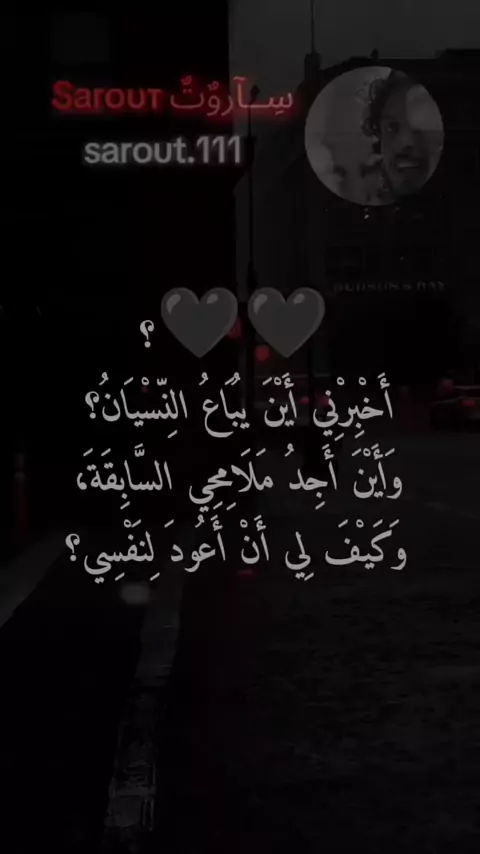 Sarouт سِــآروٌتٌ
sarout.111
HUDSON'S BAY
؟
أَخْبِرْنِي أَيْنَ يُبَاعُ النِّسْيَانُ؟
وَأَيْنَ أَجِدُ مَلَامِحِي السَّابِقَةَ،
وَكَيْفَ لِي أَنْ أَعُودَ لِنَفْسِي؟